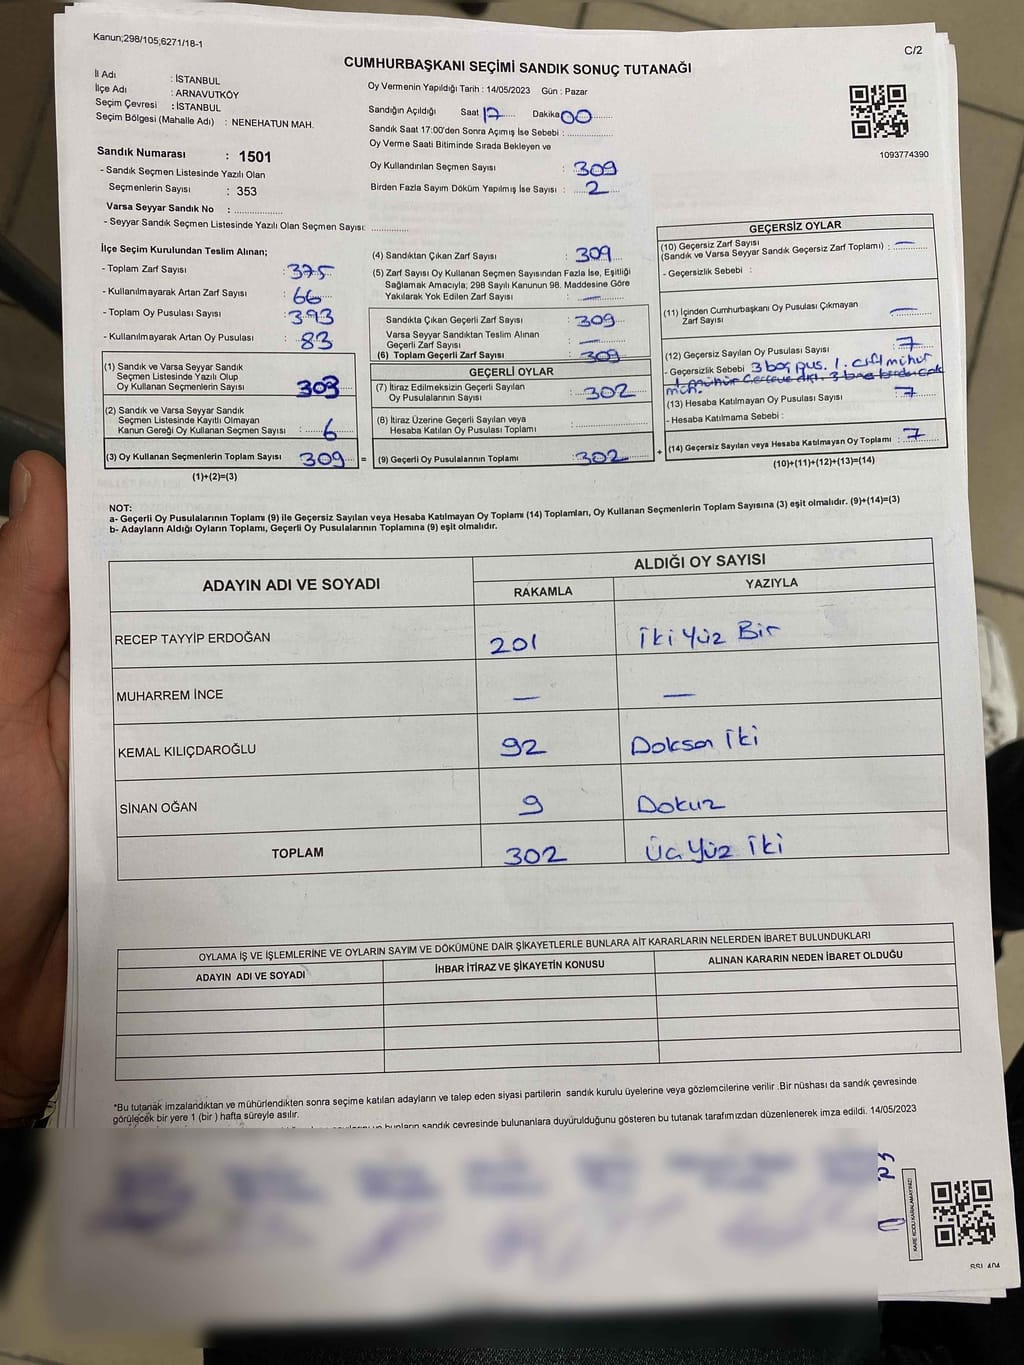 Kanun;298/105;6271/18-1
C/2
CUMHURBAŞKANI SEÇİMİ SANDIK SONUÇ TUTANAĞI
İl Adı : İSTANBUL
İlçe Adı : ARNAVUTKÖY
Seçim Çevresi : İSTANBUL
Seçim Bölgesi (Mahalle Adı) : NENEHATUN MAH.
Oy Vermenin Yapıldığı Tarih : 14/05/2023 Gün : Pazar
Sandığın Açıldığı Saat 17 Dakika 00
Sandık Saat 17:00'den Sonra Açımış İse Sebebi :
Oy Verme Saati Bitiminde Sırada Bekleyen ve
Oy Kullandırılan Seçmen Sayısı : 309
Birden Fazla Sayım Döküm Yapılmış İse Sayısı : 2
1093774390
Sandık Numarası : 1501
- Sandık Seçmen Listesinde Yazılı Olan
Seçmenlerin Sayısı : 353
Varsa Seyyar Sandık No :
- Seyyar Sandık Seçmen Listesinde Yazılı Olan Seçmen Sayısı:
İlçe Seçim Kurulundan Teslim Alınan;
- Toplam Zarf Sayısı : 375
- Kullanılmayarak Artan Zarf Sayısı : 66
- Toplam Oy Pusulası Sayısı : 393
- Kullanılmayarak Artan Oy Pusulası : 83
(1) Sandık ve Varsa Seyyar Sandık
Seçmen Listesinde Yazılı Olup
Oy Kullanan Seçmenlerin Sayısı : 303
(2) Sandık ve Varsa Seyyar Sandık
Seçmen Listesinde Kayıtlı Olmayan
Kanun Gereği Oy Kullanan Seçmen Sayısı : 6
(3) Oy Kullanan Seçmenlerin Toplam Sayısı 309 =
(1)+(2)=(3)
(4) Sandıktan Çıkan Zarf Sayısı : 309
(5) Zarf Sayısı Oy Kullanan Seçmen Sayısından Fazla İse, Eşitliği
Sağlamak Amacıyla; 298 Sayılı Kanunun 98. Maddesine Göre
Yakılarak Yok Edilen Zarf Sayısı : —
Sandıkta Çıkan Geçerli Zarf Sayısı : 309
Varsa Seyyar Sandıktan Teslim Alınan
Geçerli Zarf Sayısı : —
(6) Toplam Geçerli Zarf Sayısı : 309
GEÇERLİ OYLAR
(7) İtiraz Edilmeksizin Geçerli Sayılan
Oy Pusulasının Sayısı : 302
(8) İtiraz Üzerine Geçerli Sayılan veya
Hesaba Katılan Oy Pusulası Toplamı :
(9) Geçerli Oy Pusulalarının Toplamı : 302 +
GEÇERSİZ OYLAR
(10) Geçersiz Zarf Sayısı
(Sandık ve Varsa Seyyar Sandık Geçersiz Zarf Toplamı) : —
- Geçersizlik Sebebi :
(11) İçinden Cumhurbaşkanı Oy Pusulası Çıkmayan
Zarf Sayısı : —
(12) Geçersiz Sayılan Oy Pusulası Sayısı : 7
- Geçersizlik Sebebi 3 boş pus. 1. çift mühür
(13) Hesaba Katılmayan Oy Pusulası Sayısı : 7
- Hesaba Katılmama Sebebi :
(14) Geçersiz Sayılan veya Hesaba Katılmayan Oy Toplamı : 7
(10)+(11)+(12)+(13)=(14)
NOT:
a- Geçerli Oy Pusulalarının Toplamı (9) ile Geçersiz Sayılan veya Hesaba Katılmayan Oy Toplamı (14) Toplamları, Oy Kullanan Seçmenlerin Toplam Sayısına (3) eşit olmalıdır. (9)+(14)=(3)
b- Adayların Aldığı Oyların Toplamı, Geçerli Oy Pusulalarının Toplamına (9) eşit olmalıdır.
ADAYIN ADI VE SOYADI
ALDIĞI OY SAYISI
RAKAMLA YAZIYLA
RECEP TAYYİP ERDOĞAN 201 İki Yüz Bir
MUHARREM İNCE — —
KEMAL KILIÇDAROĞLU 92 Doksan İki
SİNAN OĞAN 9 Dokuz
TOPLAM 302 Üç Yüz İki
OYLAMA İŞ VE İŞLEMLERİNE VE OYLARIN SAYIM VE DÖKÜMÜNE DAİR ŞİKAYETLERLE BUNLARA AİT KARARLARIN NELERDEN İBARET BULUNDUKLARI
ADAYIN ADI VE SOYADI İHBAR İTİRAZ VE ŞİKAYETİN KONUSU ALINAN KARARIN NEDEN İBARET OLDUĞU
*Bu tutanak imzalandıktan ve mühürlendikten sonra seçime katılan adayların ve talep eden siyasi partilerin sandık kurulu üyelerine veya gözlemcilerine verilir .Bir nüshası da sandık çevresinde
görülecek bir yere 1 (bir ) hafta süreyle asılır.
bunların sandık çevresinde bulunanlara duyurulduğunu gösteren bu tutanak tarafımızdan düzenlenerek imza edildi. 14/05/2023
KARE KODU KARALAMAYINIZ!